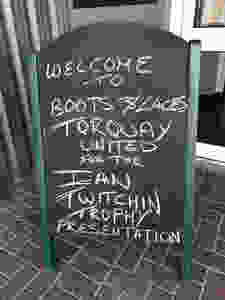 WELCOME
TO
BOOTS & LACES
TORQUAY
UNITED
FOR THE
IAN
TWITCHIN
TROPHY
PRESENTATION